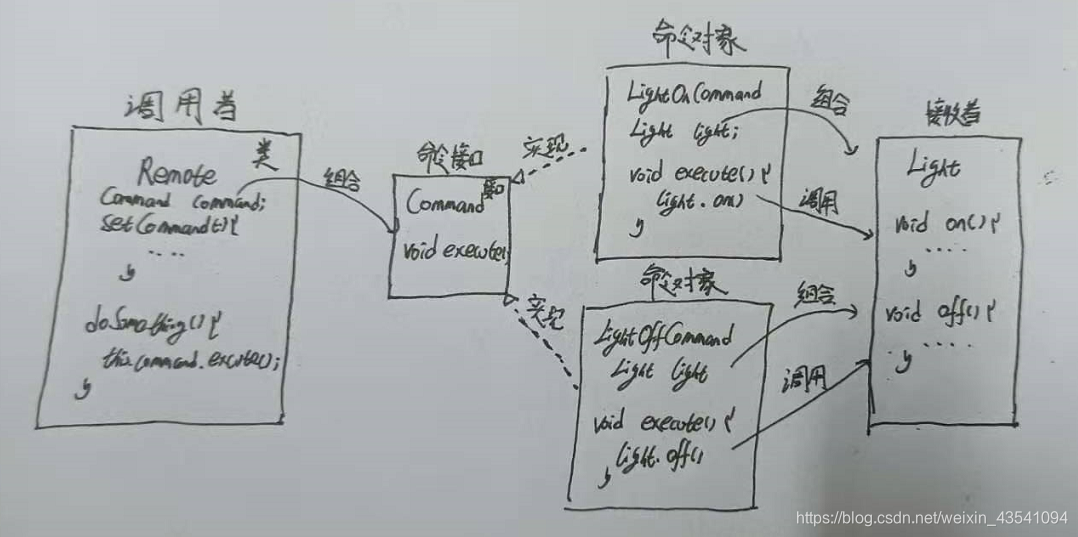 调用者
类
Remote
Command command;
setCommand(){
....
}
doSomathing(){
this.command.execute();
}
组合
命令接口
接口
Command
void execute;
实现
实现
命令对象
LightOnCommand
Light light;
void execute(){
light.on()
}
组合
调用
命令对象
LightOffCommand
Light light
void execute(){
light.off()
}
组合
调用
接收者
Light
void on(){
....
}
void off(){
....
}
https://blog.csdn.net/weixin_43541094